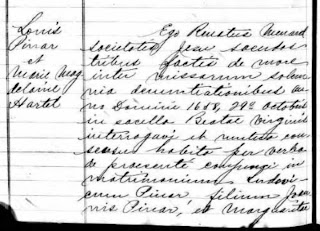 Louis
Pinar
et
Marie Mag
delaine
Hartel
Ego Renatus Menard
societatis Jesu sacerdos
tribus factis de more
inter missarum solem
nia denuntiationibus an
no Domini 1658, 29a Octobris
in sacello Beatae Virginis
interrogavi et mutuo con
sensu habito per verba
de praesenti conjungi in
matrimonium Ludovi
cum Pinar filium Joan
nis Pinar, et Margaritae